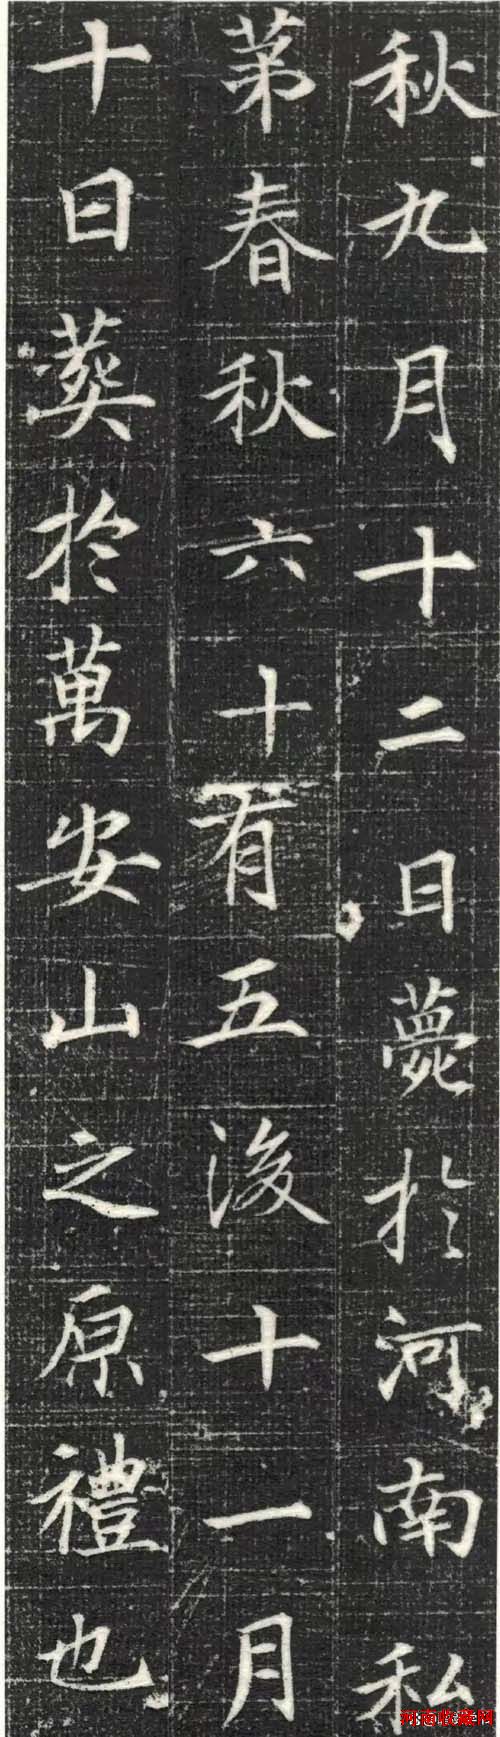 秋九月十二日薨於河南私
苐春秋六十有五後十一月
十日葬於萬安山之原禮也
河南收藏网